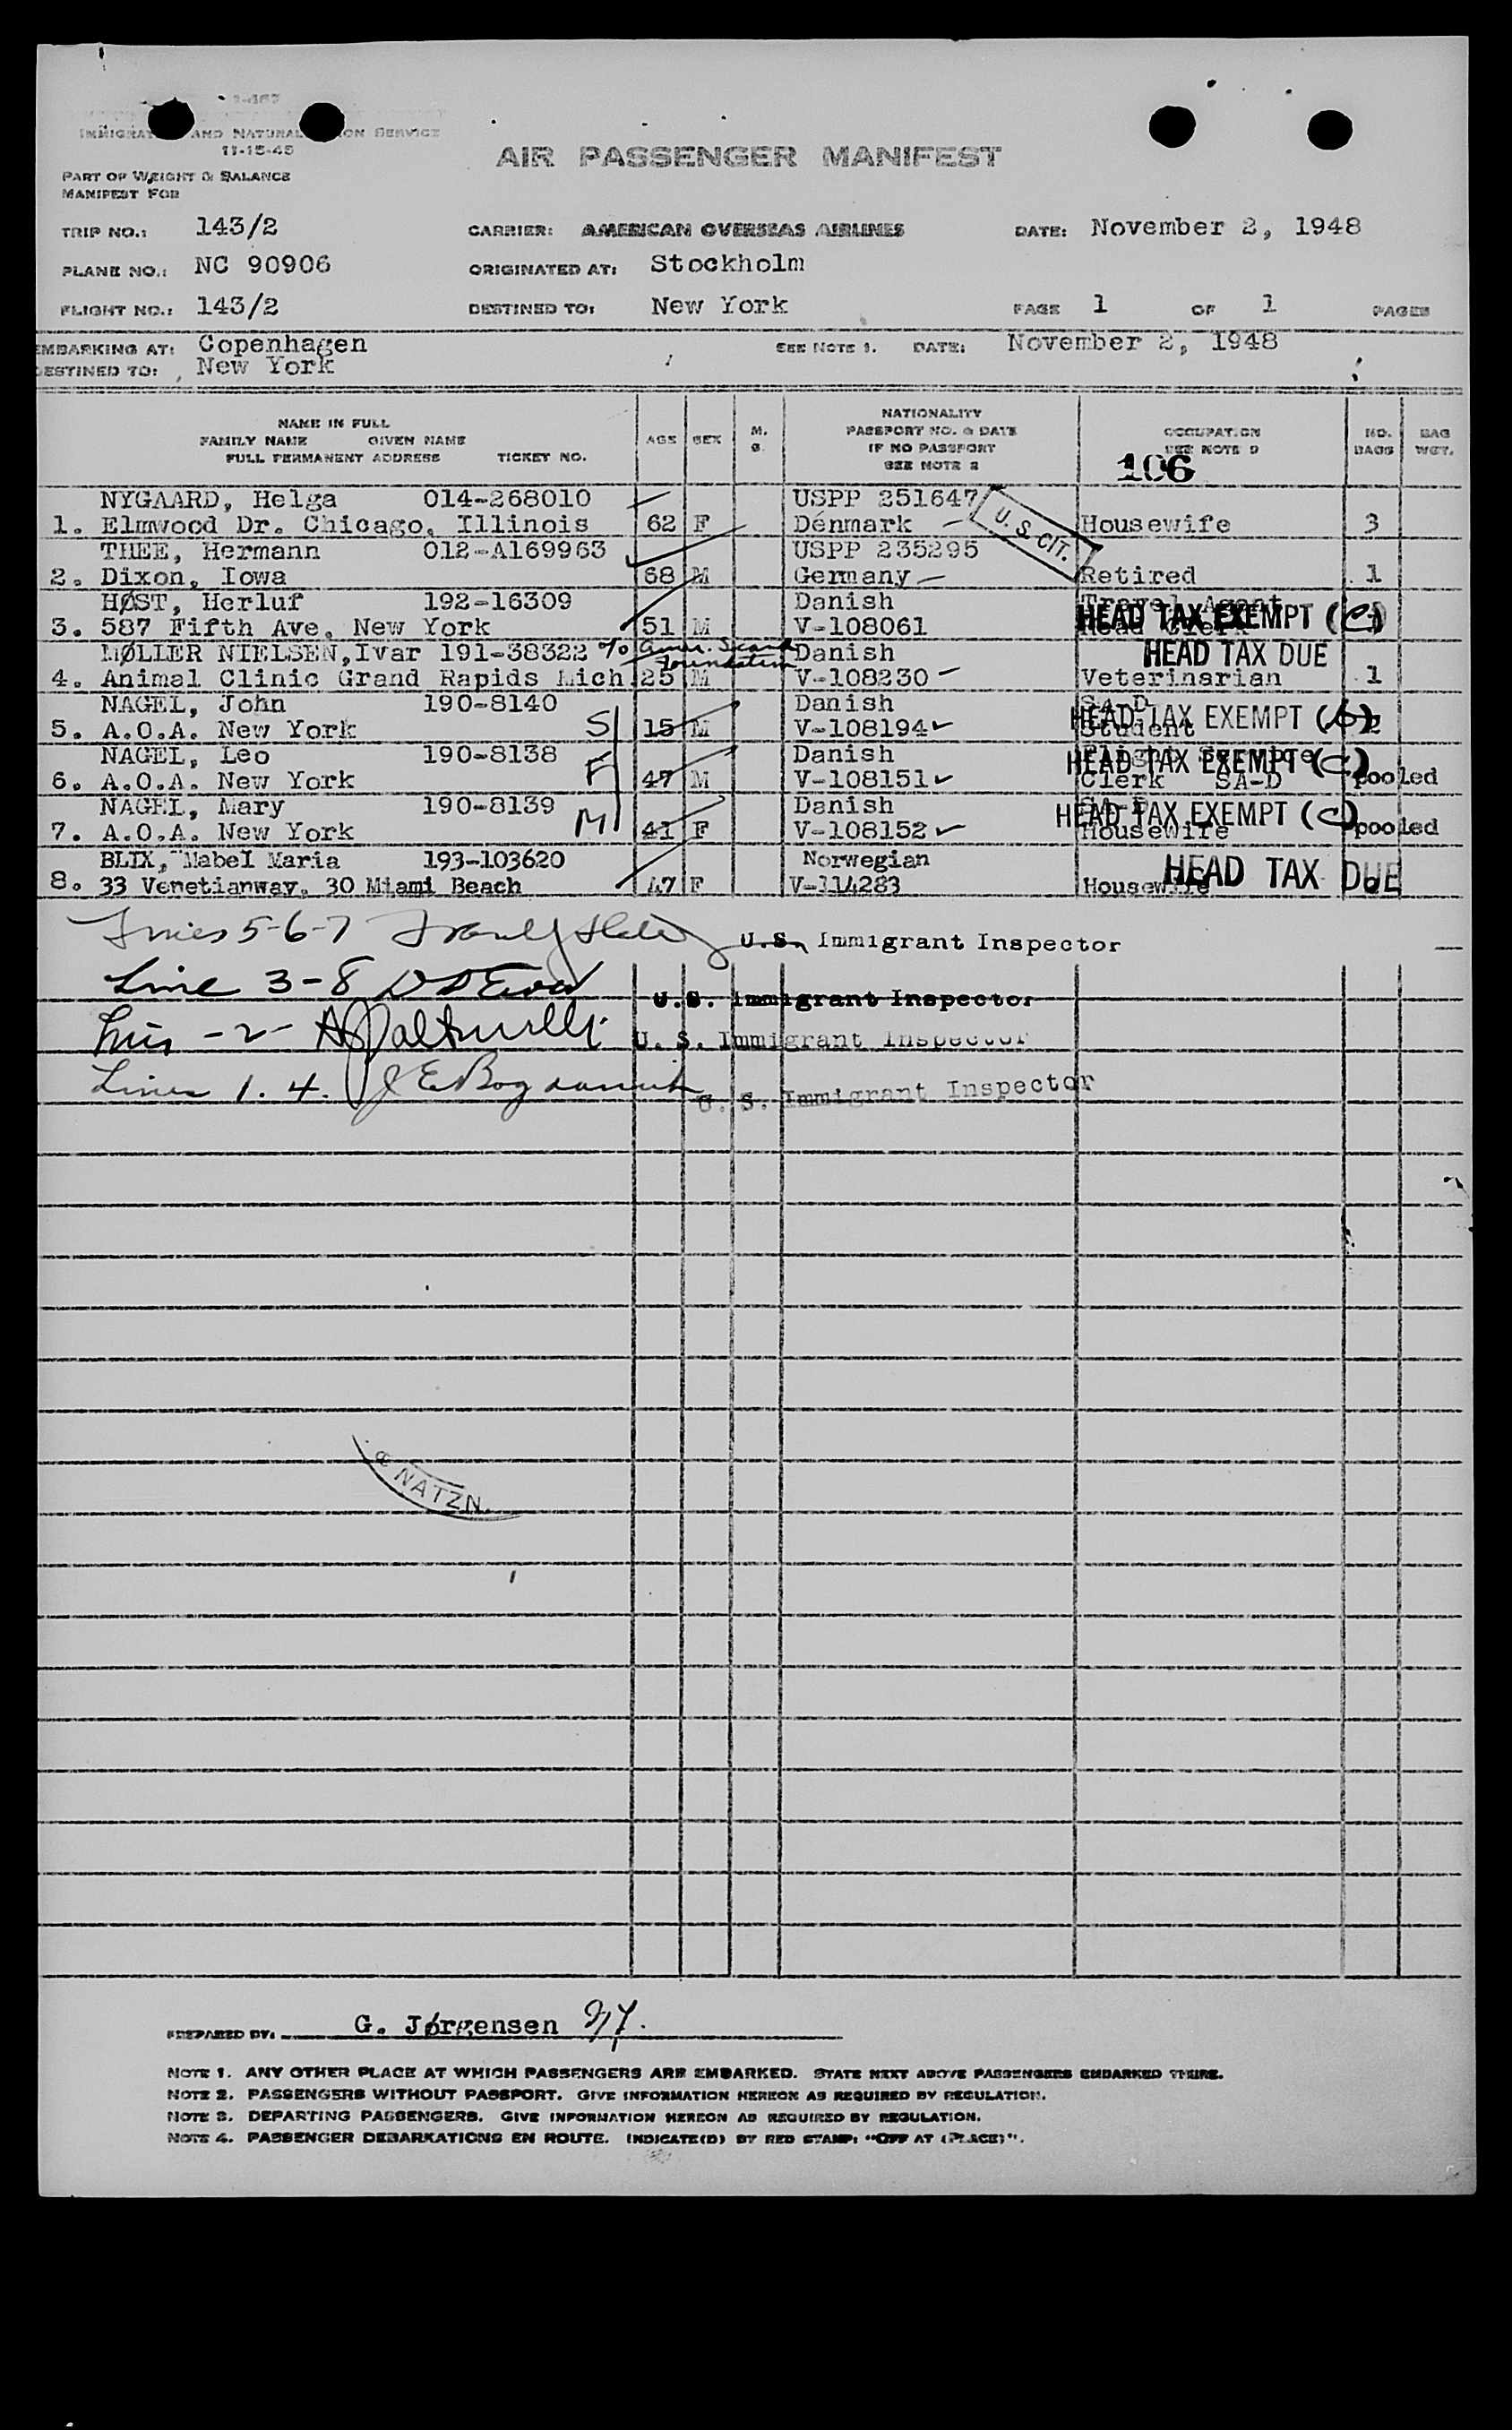 1-467
IMMIGRATION AND NATURALIZATION SERVICE
11-15-45
AIR PASSENGER MANIFEST
PART OF WEIGHT & BALANCE
MANIFEST FOR
TRIP NO.: 143/2 CARRIER: AMERICAN OVERSEAS AIRLINES DATE: November 2, 1948
PLANE NO.: NC 90906 ORIGINATED AT: Stockholm
FLIGHT NO.: 143/2 DESTINED TO: New York PAGE 1 OF 1 PAGES
EMBARKING AT: Copenhagen SEE NOTE 1. DATE: November 2, 1948
DESTINED TO: New York
NAME IN FULL
FAMILY NAME GIVEN NAME
FULL PERMANENT ADDRESS TICKET NO.
AGE SEX M. G.
NATIONALITY
PASSPORT NO. & DATE
IF NO PASSPORT
SEE NOTE 2
OCCUPATION
SEE NOTE 3
106
NO. BAGS
BAG WGT.
NYGAARD, Helga 014-268010 USPP 251647
1. Elmwood Dr. Chicago, Illinois 62 F Denmark U. S. CIT. Housewife 3
THEE, Hermann 012-A169963 USPP 235295
2. Dixon, Iowa 68 M Germany Retired 1
HØST, Herluf 192-16309 Danish Travel Agent
3. 587 Fifth Ave. New York 51 M V-108061 Head Clerk HEAD TAX EXEMPT (c)
MØLLER NIELSEN, Ivar 191-38322 % Amer. Scand. Foundation Danish HEAD TAX DUE
4. Animal Clinic Grand Rapids Mich. 25 M V-108230 Veterinarian 1
NAGEL, John 190-8140 Danish SA-D
5. A.O.A. New York S 15 M V-108194 Student HEAD TAX EXEMPT (b) 2
NAGEL, Leo 190-8138 Danish
6. A.O.A. New York F 47 M V-108151 HEAD TAX EXEMPT (c) Clerk SA-D pooled
NAGEL, Mary 190-8139 Danish SA-D
7. A.O.A. New York M 41 F V-108152 HEAD TAX EXEMPT (c) Housewife pooled
BLIX, Mabel Maria 193-103620 Norwegian
8. 33 Venetianway, 30 Miami Beach 47 F V-114283 Housewife HEAD TAX DUE
Lines 5-6-7 U.S. Immigrant Inspector
Line 3-8 U.S. Immigrant Inspector
Line -2- U. S. Immigrant Inspector
Lines 1. 4. U. S. Immigrant Inspector
& NATZN.
PREPARED BY: G. Jørgensen
NOTE 1. ANY OTHER PLACE AT WHICH PASSENGERS ARE EMBARKED. STATE NEXT ABOVE PASSENGERS EMBARKED THERE.
NOTE 2. PASSENGERS WITHOUT PASSPORT. GIVE INFORMATION HEREON AS REQUIRED BY REGULATION.
NOTE 3. DEPARTING PASSENGERS. GIVE INFORMATION HEREON AS REQUIRED BY REGULATION.
NOTE 4. PASSENGER DEBARKATIONS EN ROUTE. INDICATE(D) BY RED STAMP: "OFF AT (PLACE)".